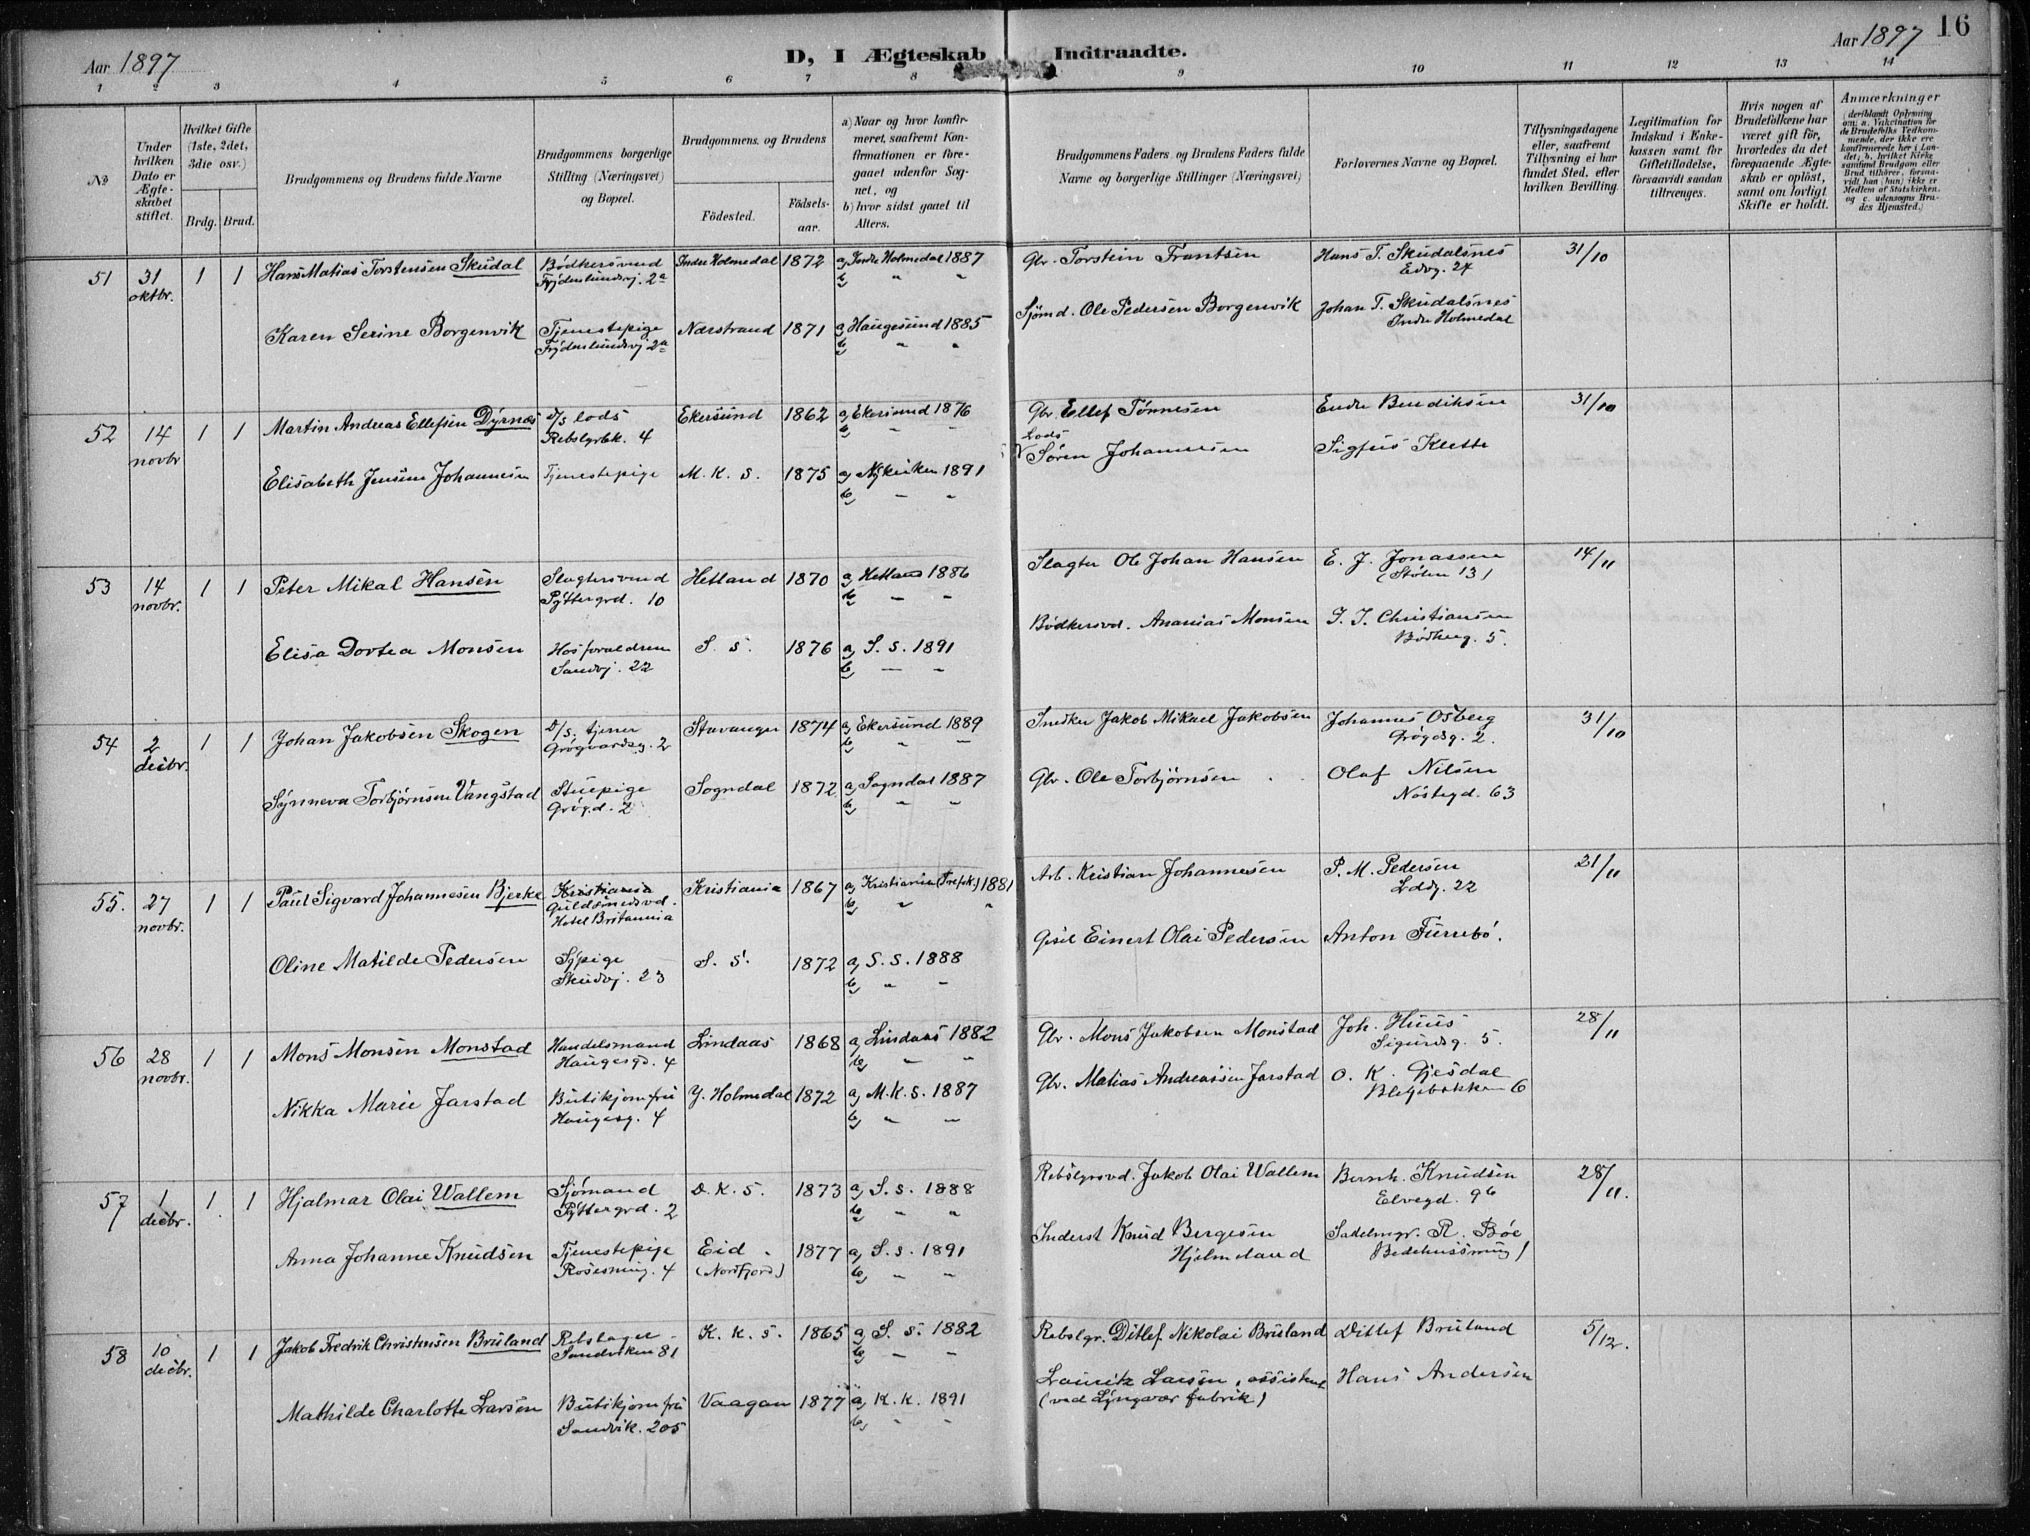 Aar 1897
D, I Ægteskab Indtraadte.
Aar 1897
16
1 2 3 4 5 6 7 8 9 10 11 12 13 14
No
Under hvilken Dato er Ægteskabet stiftet.
Hvilket Gifte (1ste, 2det, 3die osv.)
Brdg. Brud.
Brudgommens og Brudens fulde Navne
Brudgommens borgerlige Stilling (Næringsvei) og Bopæl.
Brudgommens og Brudens
Födested.
Födselsaar.
a) Naar og hvor konfirmeret, saafremt Konfirmationen er foregaaet udenfor Sognet, og
b) hvor sidst gaaet til Alters.
Brudgommens Faders og Brudens Faders fulde Navne og borgerlige Stillinger (Næringsvei)
Forlovernes Navne og Bopæl.
Tillysningsdagene eller, saafremt Tillysning ei har fundet Sted, efter hvilken Bevilling.
Legitimation for Indskud i Enkekassen samt for Giftetilladelse, forsaavidt saadan tiltrænges.
Hvis nogen af Brudefolkene har været gift för, hvorledes da det foregaaende Ægteskab er oplöst, samt om lovligt Skifte er holdt.
Anmærkninger
(deriblandt Oplysning om: a. Vakcination for de Brudefolks Vedkommende, der ikke ere konfirmerede her i Landet; b. hvilket Kirkesamfund Brudgom eller Brud tilhörer, forsaavidt han (hun) ikke er Medlem af Statskirken. og c. udensogns Brudes Hjemsted.)
51 31 oktbr. 1 1 Hans Matias Torstensen Skudal Bödkersvend Frydenlundsvj. 2a Indre Holmedal 1872 a) Indre Holmedal 1887 b) " " Gbr. Torstein Frantsen Hans T. Skudalsnes Edvg. 24 31/10
Karen Serine Borgenvik Tjenestepige Frydenlundsvj 2a Nærstrand 1871 a) Haugesund 1885 b) " " Sjömd. Ole Pedersen Borgenvik Johan T. Skudalsnes Indre Holmedal
52 14 novbr 1 1 Martin Andreas Ellefsen Dyrnæs D/S lods Rebslgrbk. 4 Ekersund 1862 a) Ekersund 1876 b) " " Gbr Ellef Tönnesen Endre Bendiksen 31/10
Elisabeth Jensine Johannesen Tjenestepige M. K. S. 1875 a) Nykirken 1891 b) " " Lods Sören Johannesen Sigfus Klette
53 14 novbr. 1 1 Peter Mikal Hansen Slagtersvend Pyttergrd. 10 Hetland 1870 a) Hetland 1886 b) " " Slagter Ole Johan Hansen E. J. Jonassen (Stölen 13) 14/11
Elisa Dortea Monsen Hos foraldrene Sandvj. 22 S. S. 1876 a) S. S. 1891 b) " " Bödkersvd. Ananias Monsen I. I. Christiansen Bödkerg. 5.
54 2 decbr. 1 1 Johan Jakobsen Skogen D/S. tjener Grögaardsg. 2 Stavanger 1874 a) Ekersund 1889 b) " " Snedker Jakob Mikael Jakobsen Johannes Osberg Grögdsg. 2. 31/10
Synneva Torbjörnsen Vangstad Stuepige Grögd. 2 Sogndal 1872 a) Sogndal 1887 b) " " Gbr. Ole Torbjörnsen Olaf Nilsen Nöstegd. 63
55. 27 novbr. 1 1 Paul Sigvard Johannesen Bjerke Kristiania Guldsmedsvd. Hotel Britannia Kristiania 1867 a) Kristiania (Trefsk.) 1881 b) " " Arb. Kristian Johannesen P. M. Pedersen Lddg. 22 21/11
Oline Matilde Pedersen Sypige Skudvj. 23 S. S. 1872 a) S. S. 1888 b) " " Gesel Einert Olai Pedersen Anton Furrebö.
56 28 novbr. 1 1 Mons Monsen Monstad Handelsmand Haugesgd. 4 Lindaas 1868 a) Lindaas 1882 b) " " Gbr. Mons Jakobsen Monstad Joh. Huus Sigurdsg. 5. 28/11
Nikka Marie Jarstad Butikjomfru Haugesg. 4 Y. Holmedal 1872 a) M. K. S. 1887 b) " " Gbr. Matias Andreassen Jarstad O. K. Gjesdal Blegebakken 6
57 1 decbr. 1 1 Hjalmar Olai Wallem Sjömand Pyttergrd. 2 D. K. S. 1873 a) S. S. 1888 b) " " Rebslgrsvd. Jakob Olai Wallem Bernh. Knudsen Elvegd. 96 28/11.
Anna Johanne Knudsen Tjenestepige Rosesmug. 4 Eid (Nordfjord) 1877 a) S. S. 1891 b) " " Inderst Knud Bergesen Hjelmeland Sadelmgr. R. Böe Bedehussmug 1
58 10 decbr. 1 1 Jakob Fredrik Christensen Bruland Rebslager Sandviken 81 K. K. S. 1865 a) S. S. 1882 b) " " Rebslgr. Ditlef Nikolai Bruland Ditlef Bruland 5/12.
Mathilde Charlotte Larsen Butikjomfru Sandvik. 205 Vaagan 1877 a) K. K. 1891 b) " " Lauritz Larsen, assistent (ved Lyngvær fabrik) Hans Andersen